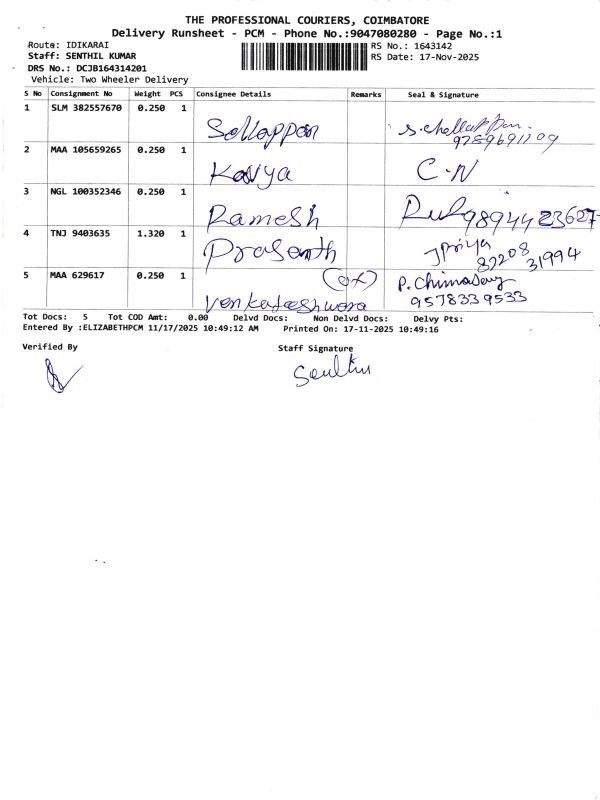 THE PROFESSIONAL COURIERS, COIMBATORE
Delivery Runsheet - PCM - Phone No.:9047080280 - Page No.:1
Route: IDIKARAI
RS No.: 1643142
Staff: SENTHIL KUMAR
RS Date: 17-Nov-2025
DRS No.: DCJB164314201
Vehicle: Two Wheeler Delivery
S No Consignment No Weight PCS Consignee Details Remarks Seal & Signature
1 SLM 382557670 0.250 1
Sellappan
2 MAA 105659265 0.250 1
Kavya C.N
3 NGL 100352346 0.250 1
Ramesh 9894423627
4 TNJ 9403635 1.320 1
Prasanth JPriya
87208
31994
5 MAA 629617 0.250 1
(OX)
Venkateshwara 9578339533
Tot Docs: 5 Tot COD Amt: 0.00 Delvd Docs: Non Delvd Docs: Delvy Pts:
Entered By :ELIZABETHPCM 11/17/2025 10:49:12 AM Printed On: 17-11-2025 10:49:16
Verified By Staff Signature